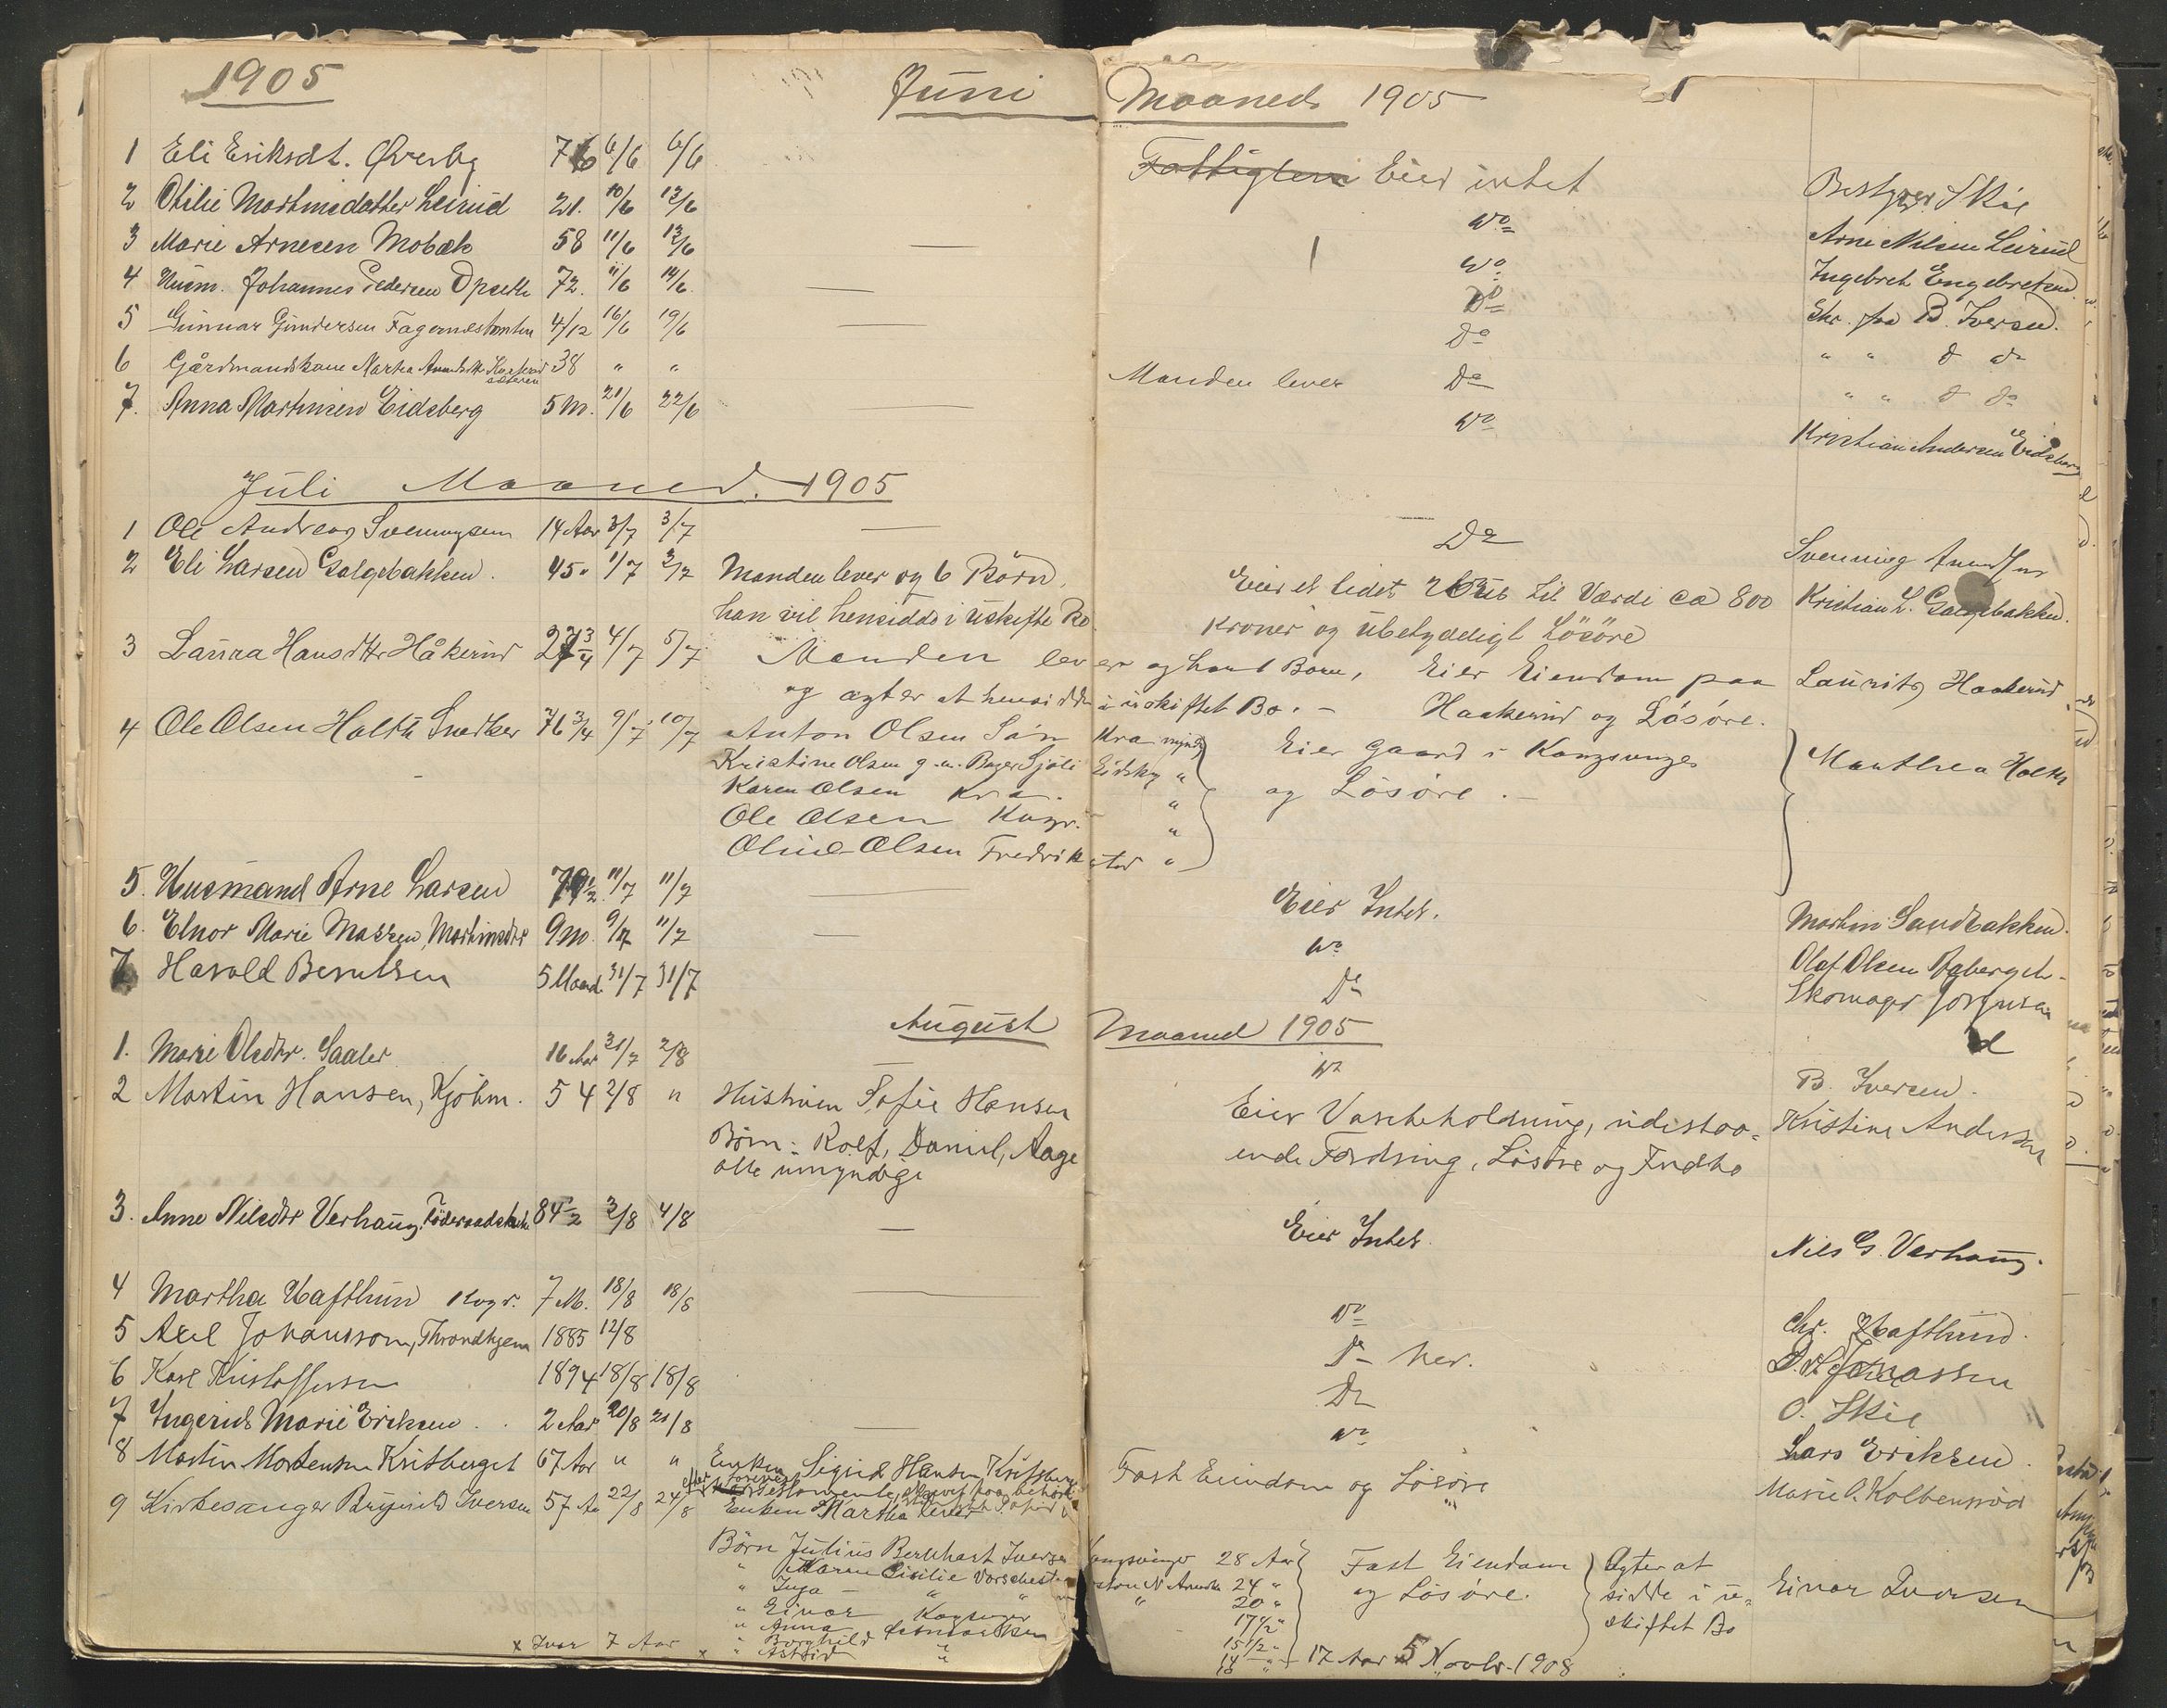 1905
Juni Maaned 1905
1 Eli Eriksdt. Øverby 76 6/6 6/6 Eier intet Bestyrer Skie
2 Otilie Martinsdatter Leirud 21. 10/6 13/6 Do Arne Nilsen Leirud
3 Marie Arnesen Mobæk 58 11/6 13/6 — Do Ingebret Engebretsen
4 Husm. Johannes Pedersen Opseth 72. 11/6 14/6 — Do Skr. fra B. Iversen.
5 Gunnar Gundersen Fagernestomten 4/12 16/6 19/6 — Do " " d do
6 Gårdmandskone Marta 38 " " Manden lever Do " " d do
7. Anna Martinsen Eidsberg 5 M. 21/6 22/6 — Do Kristian Andersen Eidsberg
Juli Maaned. 1905
1 Ole Andreas Svenningsen 14 Aar 3/7 3/7 — Do Svenning
2 Eli Larsen Galgebakken. 45 " 1/7 3/7 Manden lever og 6 Börn, Eier et lidet til Værdi ca 800 Kristian L. Galgebakken.
han vil hensidde i uskifte Bo kroner og ubetyddeligt Lösöre
3 Laura Hansdtr Håkerud 27 3/4 4/7 5/7 Manden lever og har 1 Barn, Eier Eiendom paa Lauritz Haakerud
og agter at hensidde i uskiftet Bo. — Haakerud og Lösöre.
4 Ole Olsen Holth Snedker 76 3/4 9/7 10/7 Anton Olsen Sön Kra mynd. Eier Gaard i Kongsvinger Mathea Holth
Kristine Olsen g. m. Eidskog " og Lösöre. —
Karen Olsen Kra. "
Ole Olsen Kogr. "
Oline Olsen Fredrikstad "
5. Husmand Arne Larsen 79 1/2 11/7 11/7 — Eier Intet. Martin Sandbakken.
6. Elnor Marie Madsen, Martinsdtr 9 m. 9/7 11/7 — Do Olof Olsen
7 Harald Berntsen 5 Maand. 31/7 31/7 Do Skomager Jörgensen
August Maaned 1905
1. Marie Olsdtr. Saaler 16 Aar 31/7 2/8 — Do B. Iversen.
2 Martin Hansen, Kjöbm. 54 2/8 " Hustruen Sofie Hansen Eier Varebeholdning, udestaa- Kristine Andersen
Börn: Rolf, Daniel, Aage ende Fordring, Lösöre og Indbo
alle umyndige
3. Anne Nilsdtr Verhaug, Föderaadsenke 84 1/2 3/8 4/8 — Eier Intet. Nils G. Verhaug.
4 Martha Hafthun Kogr. 7 M. 18/8 18/8 — Do Chr. Hafthund.
5 Axel Johansson, Throndhjem 1885 12/8 Do her. Jonassen
6 Karl Kristoffersen 1894 18/8 18/8 Do O. Skie
7 Ingerid Marie Eriksen 2 Aar 20/8 21/8 — Do Lars Eriksen.
8 Martin Mortensen Kritberget 67 Aar " " Enken Sigrid Hansen Kritberget Fast Eiendom og Lösöre Marie O. Kolbensrud
9 Kirkesanger Brynild Iversen 57 Aar 22/8 24/8 Enken Martha lever
Börn Julius Bernhart Iversen Kongsvinger 28 Aar Fast Eiendom Agter at Einar Iversen
" Maren Cicilie 24 " og Lösöre. sidde i u-
" Inga — " 20 " skiftet Bo
" Einar Kogsvinger 17 1/2 "
" Anna 15 1/2 "
x Ivar 7 Aar " Borghild " 14 " 17 Aar 5 Novbr. 1908
x " Astrid "